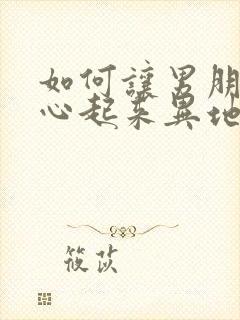 如何讓男朋
心起來異地
筱苡